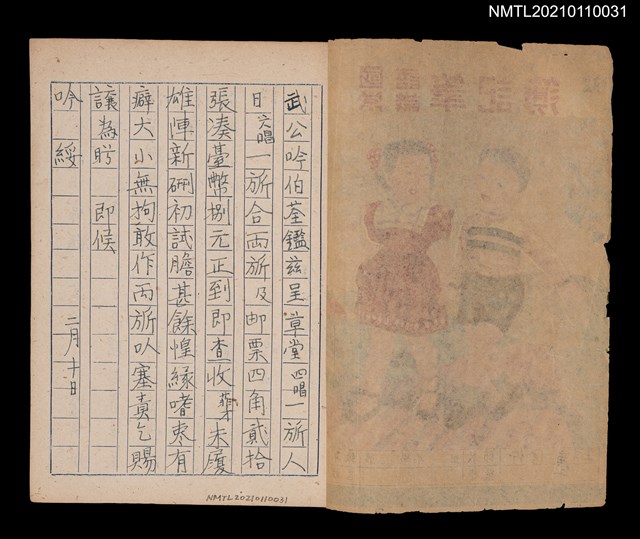 NMTL20210110031
國語常識 筆記簿
武公吟伯荃鑑茲呈草堂四唱一旂人
日六唱一旂合両旂及郵票四角貳拾
張湊臺幣捌元正到即查收 未履
雄陣新硎初試膽甚餘惶緣嗜枣有
癖大小無拘敢作両旂以塞責乞賜
讓為盼 即候
吟 綏 二月十日
NMTL20210110031